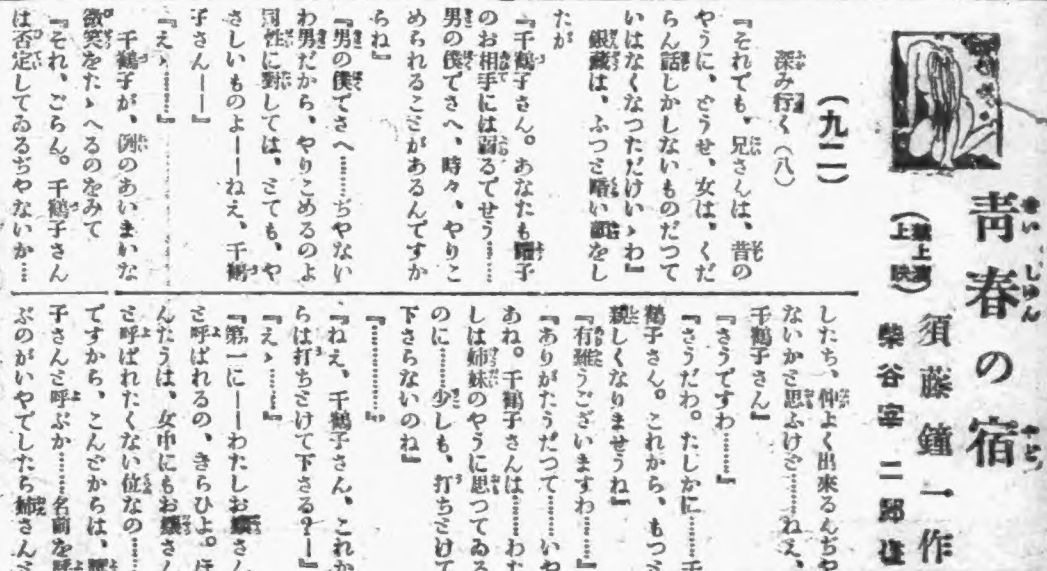 青春の宿
せいしゅんのやど
(禁上演
上映)
須藤鐘一作
柴谷宰二郎
(九二)
深み行く(八)
『それでも、兄さんは、昔の
やうに、どうせ、女は、くだ
らん話しかしないものだつて
いはなくなつただけいゝわ』
銀藏は、ふつと暗い顔をし
たが
『千鶴子さん。あなたも耀子
のお相手には弱るでせう……
男の僕でさへ、時々、やりこ
められることがあるんですか
らね』
『男の僕でさへ……ぢやない
わ男だから、やりこめるのよ
同性に對しては、とても、や
さしいものよ――ねえ、千鶴
子さん――』
『えゝ………』
千鶴子が、例のあいまいな
微笑をたゝへるのをみて
『それ、ごらん。千鶴子さん
は否定してゐるぢやないか…
したち、仲よく出來るんぢや
ないかと思ふけど………ねえ、
千鶴子さん』
『さうですわ………』
『さうだわ。たしかに………千
鶴子さん。これから、もつと
親しくなりませうね』
『有難うございますわ………』
『ありがたうだつて………いや
あね。千鶴子さんは………わた
しは姉妹のやうに思つてゐる
のに………少しも、打ちとけて
下さらないのね』
『…………』
『ねえ、千鶴子さん、これか
らは打ちとけて下さる?――』
『えゝ………』
『第一に――わたしお孃さん
と呼ばれるの、きらひよ。ほ
んたうは、女中にもお孃さん
と呼ばれたくない位なの……
ですから、こんどからは、耀
子さんと呼ぶか……名前を呼
ぶのがいやでしたら姉さんと